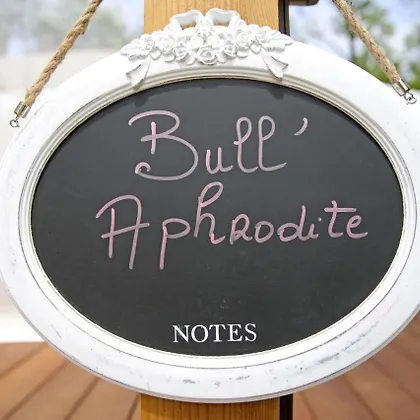 Bull'
Aphrodite
NOTES